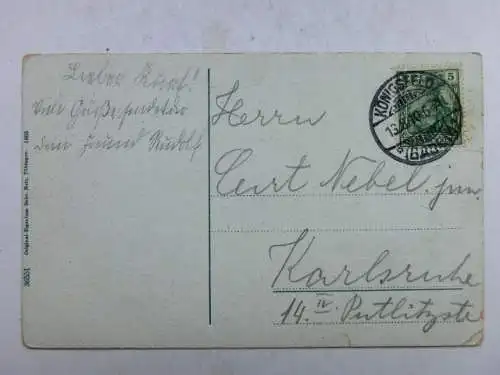 Lieber Kurt!
Viele Grüße sendet dir
dein Freund Rudolf
Herrn
Curt Nebel jun.
Karlsruhe
14. IV Putlitzstr
5
KÖNIGSFELD
(BADEN)
36251
Original-Eigentum Gebr. Metz, Tübingen